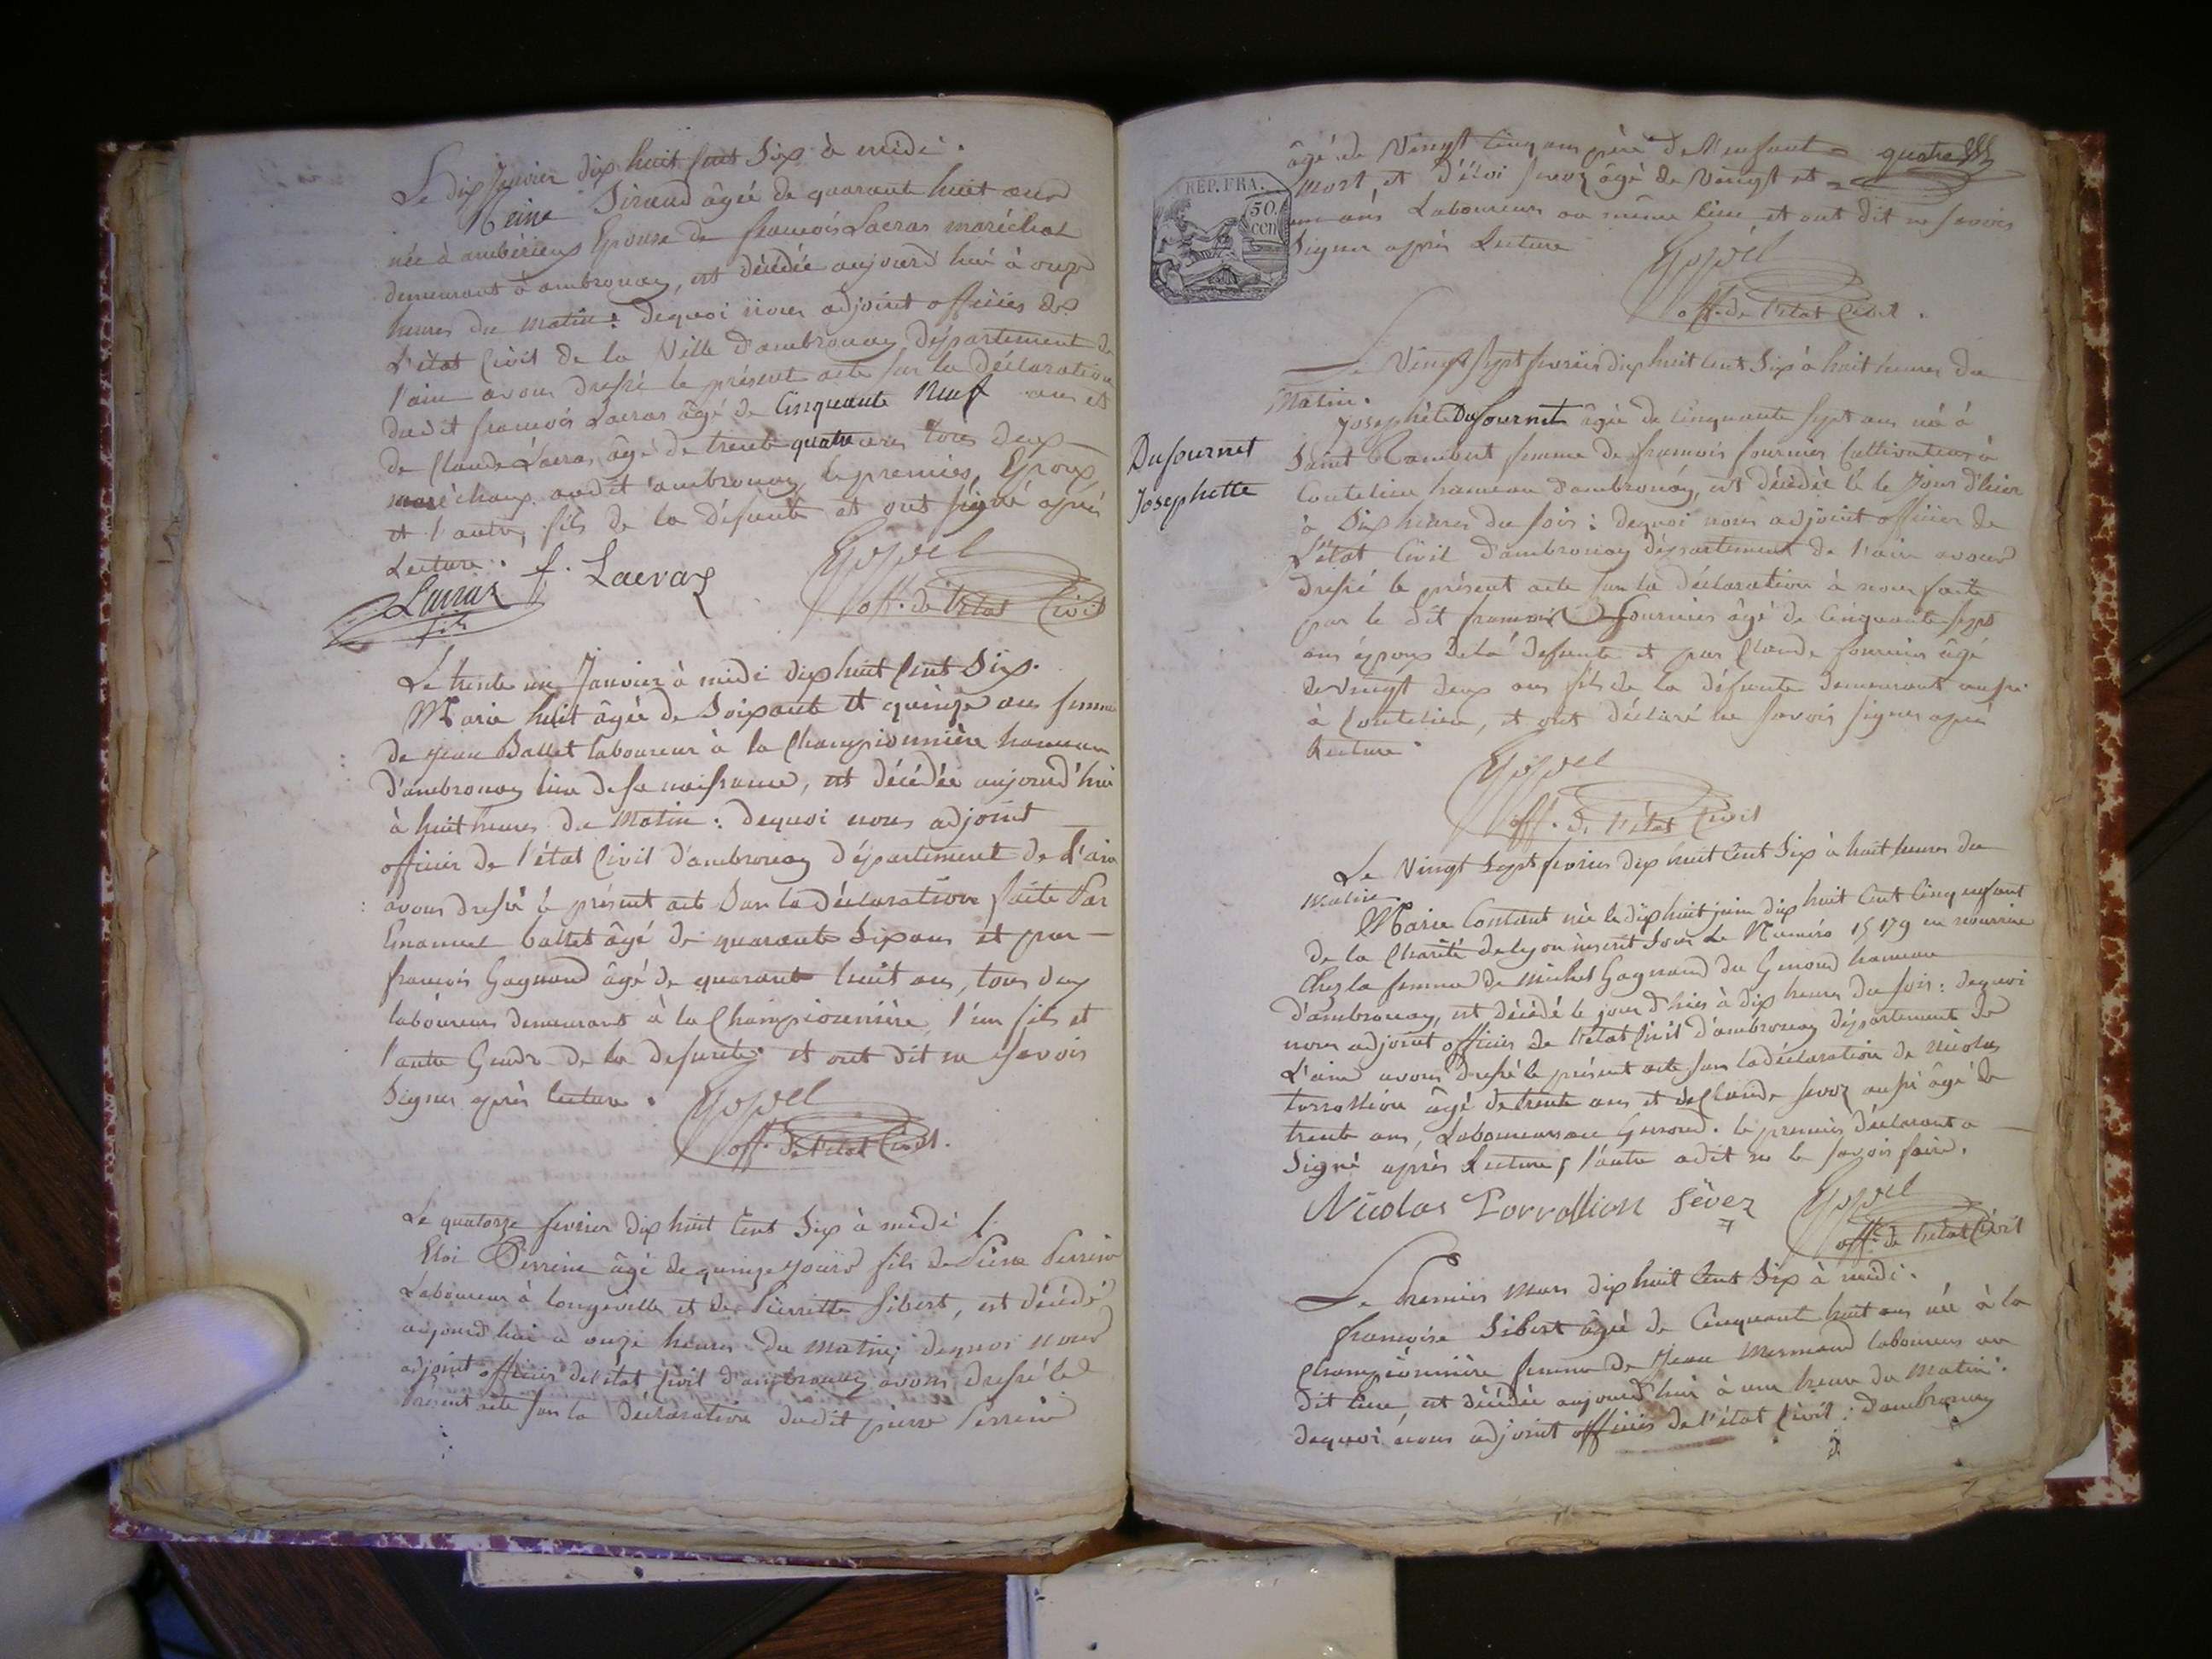 Le dix Janvier dix huit cent Six à midi.
Reine Siraud âgée de quarante huit ans
née à ambérieux Epouse de françois Lacras maréchal
demeurant à ambronay, est décédée aujourd'hui à onze
heures du matin : dequoi nous adjoint officier de
L'état Civil de la Ville d'ambronay, département de
l'ain avons dressé le présent acte sur la déclaration
dudit françois Lacras âgé de Cinquante Neuf ans et
de Claude Lacras, âgé de trente quatre ans tous deux
maréchaux audit ambronay, le premier, Epoux,
et l'autre, fils de la défunte et ont signé après
Lecture.
f. Lacras
fils
off. de l'état Civil
Le trente un Janvier à midi dix huit Cent Six.
Marie huit âgée de Soixante et quinze ans femme
de jean Ballet laboureur à la Championnière hameau
d'ambronay lieu de sa naissance, est décédée aujourd'hui
à huit heures du Matin : dequoi nous adjoint
officier de l'état Civil d'ambronay département de L'ain
avons dressé le présent acte Sur la déclaration faite Par
Emanuel ballet âgé de quarante Six ans et par
françois Gagnaud âgé de quarante huit ans, tous deux
laboureurs demeurants à la Championnière, l'un fils et
l'autre Gendre de la defunte et ont dit ne savoir
Signer après lecture.
off. de l'état Civil.
Le quatorze fevrier dix huit Cent Six à midi
Eloi Perrin âgé de quinze jours fils de Pierre Perrin
Laboureur à longeville et de Pierrette Sibert, est décédé
aujourd'hui à onze heures du matin; dequoi nous
adjoint officier de l'état Civil d'ambronay avons dressé le
présent acte sur la déclaration dudit pierre Perrin
quatre
RÉP. FRA.
50.
cen
âgé de Vingt Cinq ans père de l'enfant
mort, et d'éloi Sevoz âgé de Vingt et
un ans Laboureurs au même lieu et ont dit ne savoir
Signer après Lecture
off. de l'état Civil.
Le Vingt Sept fevrier dix huit Cent Six à huit heures du
Matin.
Dufournet
Josephette
Josephète Dufournet âgée de Cinquante Sept ans née à
Saint Rambert femme de françois fournier Cultivateur à
Coutelieu hameau d'ambronay, est décédée le Jour d'hier
à Six heures du soir : dequoi nous adjoint officier de
L'état Civil d'ambronay département de l'ain avons
dressé le présent acte sur la déclaration à nous faite
par le dit françois fournier âgé de Cinquante Sept
ans époux de la defunte et par Claude fournier âgé
de Vingt deux ans fils de la défunte demeurant aussi
à Coutelieu, et ont déclaré ne savoir signer après
Lecture
off. de l'état Civil
Le Vingt Sept fevrier dix huit Cent Six à huit heures du
Matin
Marie Contant née le dix huit juin dix huit Cent Cinq enfant
de la Charité de lyon inscrit Sous Le Numéro 15179 en nourrice
Chez la femme de Michel Gagnaud du Genoud hameau
d'ambronay, est décédé le jour d'hier à dix heures du soir : dequoi
nous adjoint officier de l'état Civil d'ambronay département de
L'ain avons dressé le présent acte sur la déclaration de Nicolas
torrollion âgé de trente ans et de Claude Sevoz aussi âgé de
trente ans, Laboureurs au Genoud. le premier déclarant a
Signé après Lecture, l'autre a dit ne le savoir faire.
Nicolas Torrollion
off. de l'état Civil
Le Premier Mars dix huit Cent Six à midi.
françoise Sibert âgée de Cinquante huit ans née à la
Championnière femme de Jean Mermand laboureur au
dit lieu, est décédée aujourd'hui à une heure du Matin :
dequoi nous adjoint officier de l'état Civil d'ambronay